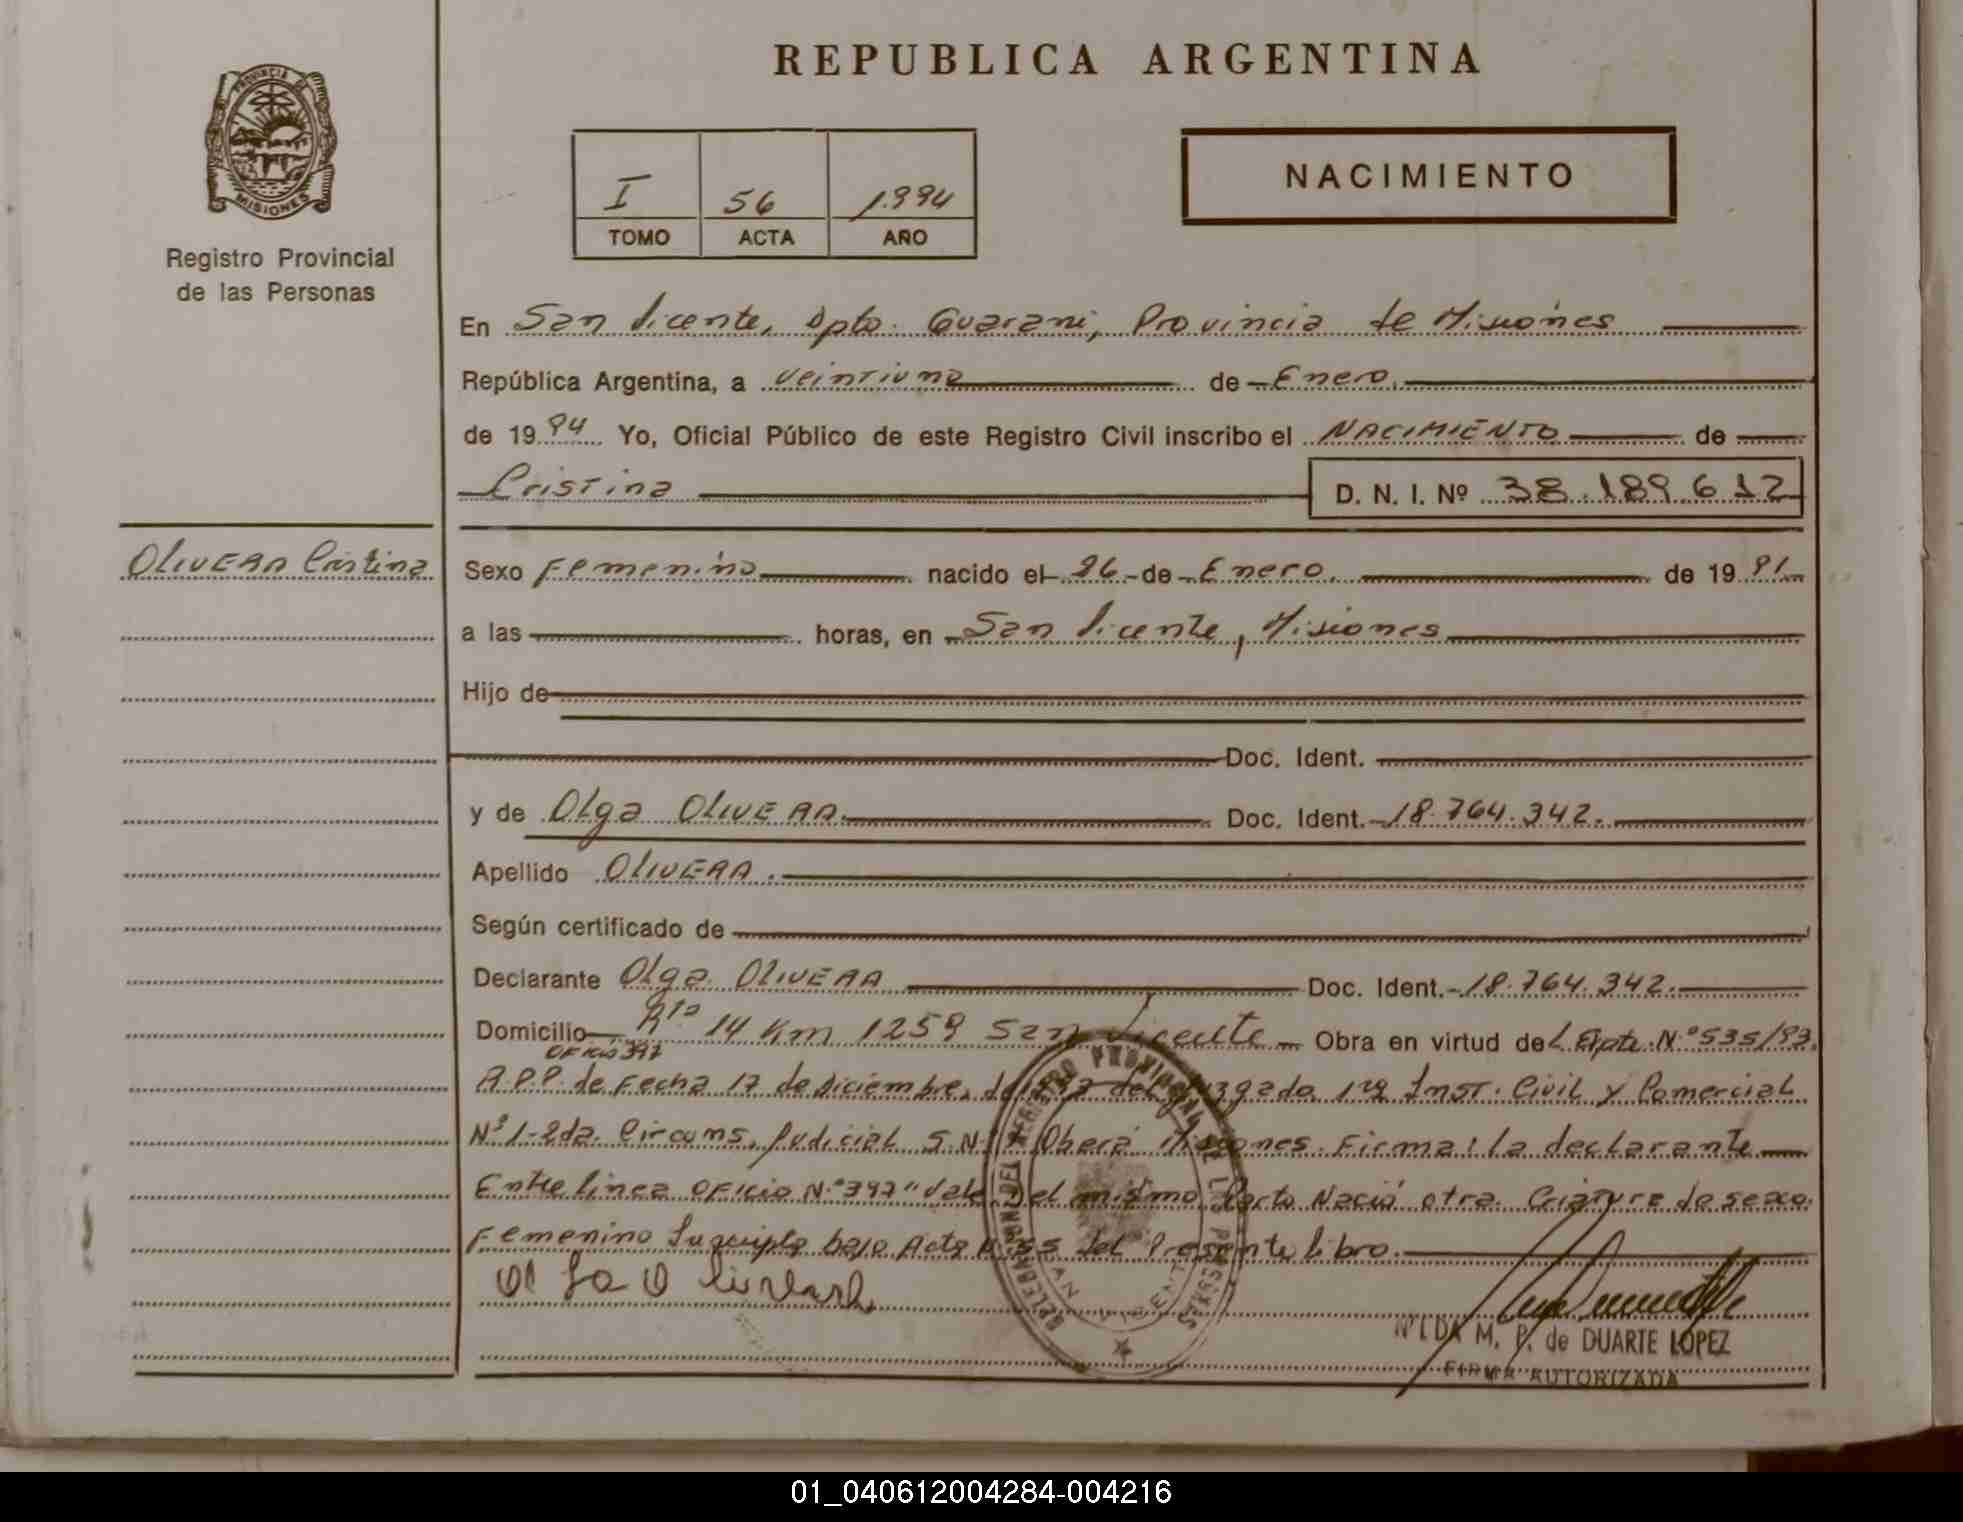 REPUBLICA ARGENTINA
PROVINCIA DE
MISIONES
Registro Provincial
de las Personas
I 56 1.994
TOMO ACTA AÑO
NACIMIENTO
En San Vicente, Dpto. Guarani, Provincia de Misiones
República Argentina, a veintiuno de Enero.
de 1994 Yo, Oficial Público de este Registro Civil inscribo el NACIMIENTO de
Cristina D. N. I. Nº 38.189.612
OLIVERA Cristina
Sexo Femenino nacido el 26 de Enero. de 1991
a las horas, en San Vicente, Misiones
Hijo de
Doc. Ident.
y de Olga OLIVERA. Doc. Ident. 18.764.342.
Apellido OLIVERA.
Según certificado de
Declarante Olga OLIVERA Doc. Ident. 18.764.342.
Domicilio Rta. 14 Km 1259 San Vicente Obra en virtud del Expte. N.º 535/93.
Oficio 397
A.P.P. de Fecha 17 de Diciembre, del Juzgado 1ra Inst. Civil y Comercial
Nº 1-2da. Circuns. Judicial S.N. Oberá Misiones. Firma: la declarante
Entre linea OFicio N.º 397 "Vale", el mismo Parto Nació otra Criatura de sexo
Femenino Inscripta bajo Acta N.º 55 del Presente libro.
REGISTRO PROVINCIAL DE LAS PERSONAS
SAN VICENTE
M. P. de DUARTE LOPEZ
FIRMA AUTORIZADA
01_040612004284-004216